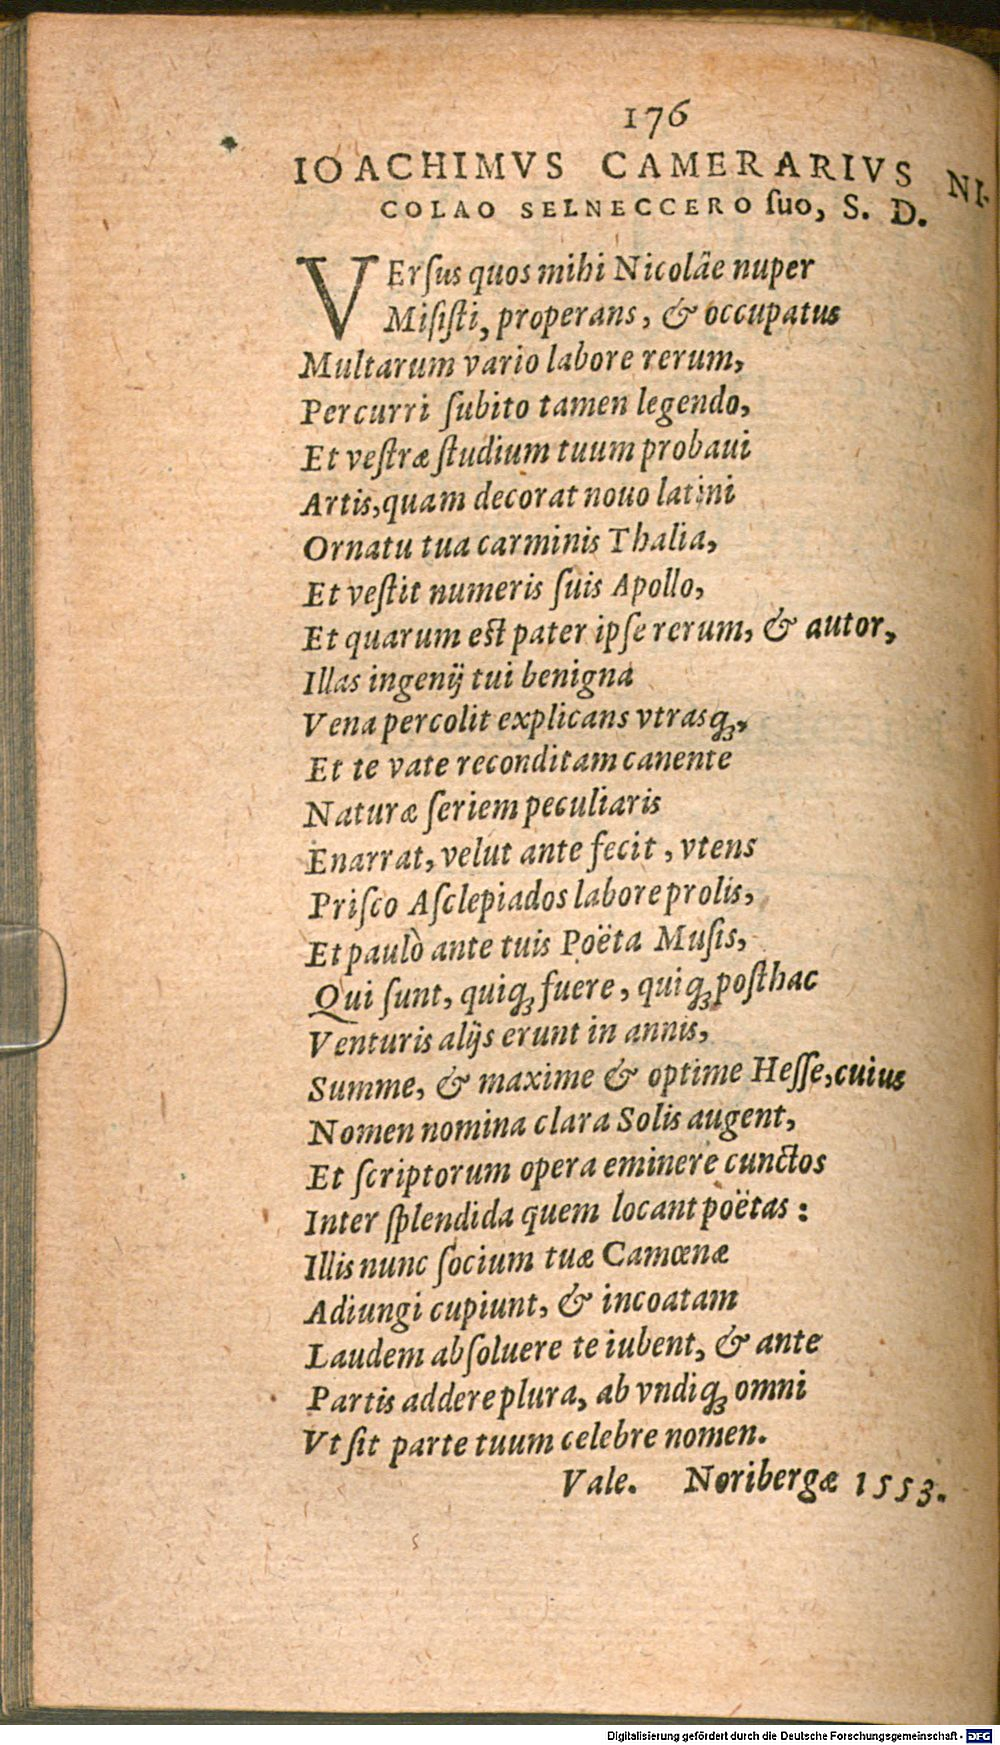 176
IOACHIMVS CAMERARIVS NI-
COLAO SELNECCERO ſuo, S. D.
VErſus quos mihi Nicolâe nuper
Miſiſti, properans, & occupatus
Multarum vario labore rerum,
Percurri ſubito tamen legendo,
Et veſtræ ſtudium tuum probaui
Artis, quam decorat nouo latini
Ornatu tua carminis Thalia,
Et veſtit numeris ſuis Apollo,
Et quarum eſt pater ipſe rerum, & autor,
Illas ingenij tui benigna
Vena percolit explicans vtrasq́;,
Et te vate reconditam canente
Naturæ ſeriem peculiaris
Enarrat, velut ante fecit, vtens
Priſco Aſclepiados labore prolis,
Et paulò ante tuis Poëta Muſis,
Qui ſunt, quiq́; fuere, quiq́; poſthac
Venturis alijs erunt in annis,
Summe, & maxime & optime Heſſe, cuius
Nomen nomina clara Solis augent,
Et ſcriptorum opera eminere cunctos
Inter ſplendida quem locant poëtas:
Illis nunc ſocium tuæ Camœnæ
Adiungi cupiunt, & incoatam
Laudem abſoluere te iubent, & ante
Partis addere plura, ab vndiq́; omni
Vt ſit parte tuum celebre nomen.
Vale. Noribergæ 1553.
Digitalisierung gefördert durch die Deutsche Forschungsgemeinschaft - DFG